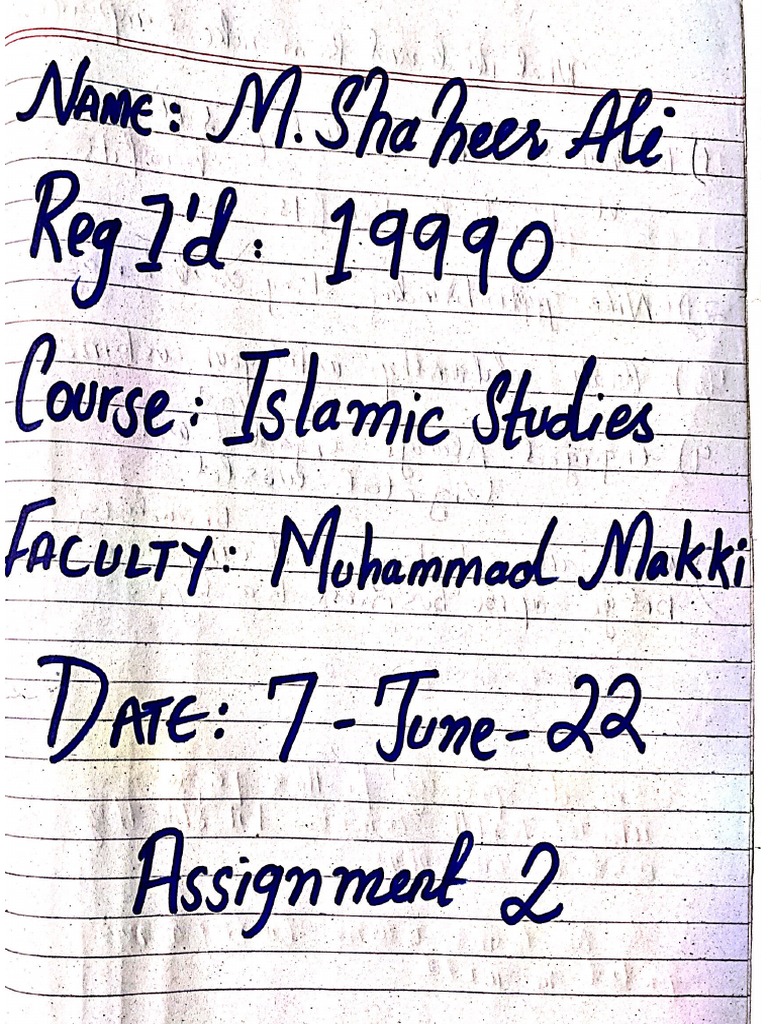 NAME: M. Shaheer Ali
Reg I'd: 19990
Course: Islamic Studies
FACULTY: Muhammad Makki
DATE: 7-June-22
Assignment 2